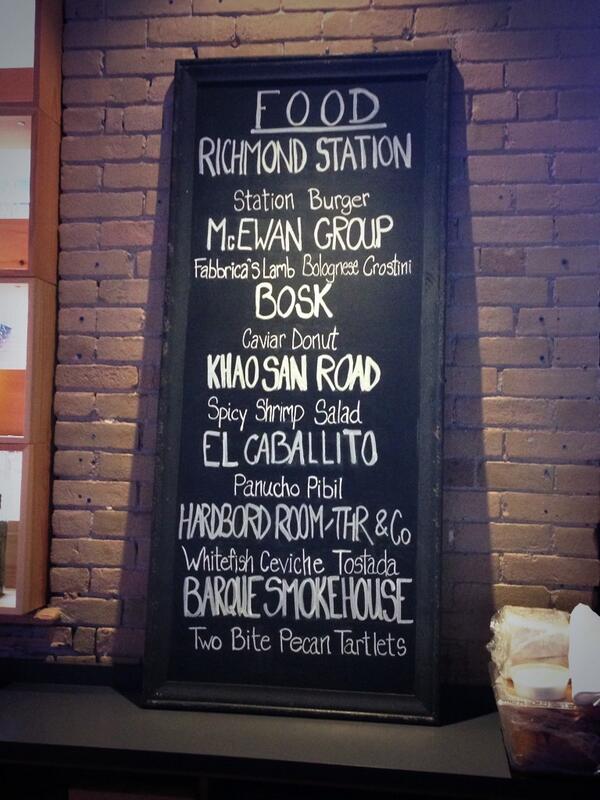 FOOD
RICHMOND STATION
Station Burger
McEWAN GROUP
Fabbrica's Lamb Bolognese Crostini
BOSK
Caviar Donut
KHAO SAN ROAD
Spicy Shrimp Salad
EL CABALLITO
Panucho Pibil
HARDBORD ROOM-THR & Co
Whitefish Ceviche Tostada
BARQUE SMOKEHOUSE
Two Bite Pecan Tartlets